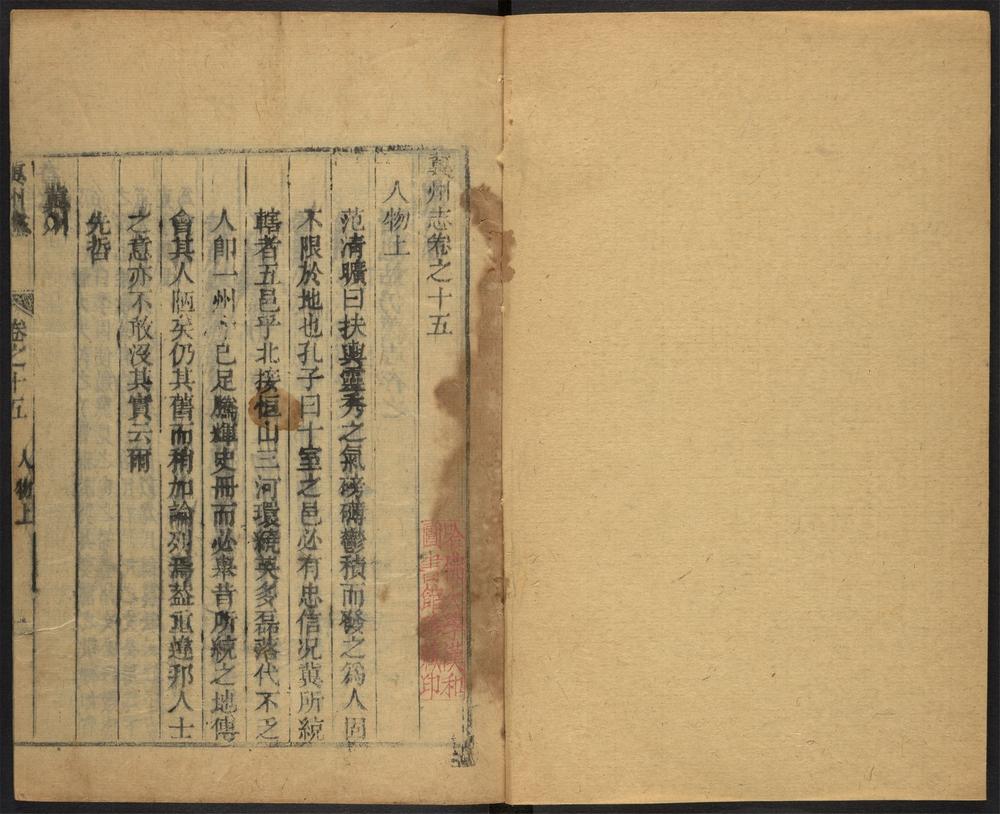 冀州志卷之十五
人物上
范清曠曰扶輿靈秀之氣磅礴鬱積而發之爲人固
不限於地也孔子曰十室之邑必有忠信况冀所統
轄者五邑乎北接恒山三河環繞英多磊落代不乏
人卽一州亦已足騰輝史冊而必舉昔所統之地傳
會其人陋矣仍其舊而稍加論列焉葢重違邦人士
之意亦不敢沒其實云爾
先哲
冀州
冀州志
卷之十五
人物上
哈佛大學漢和
圖書館珍藏印